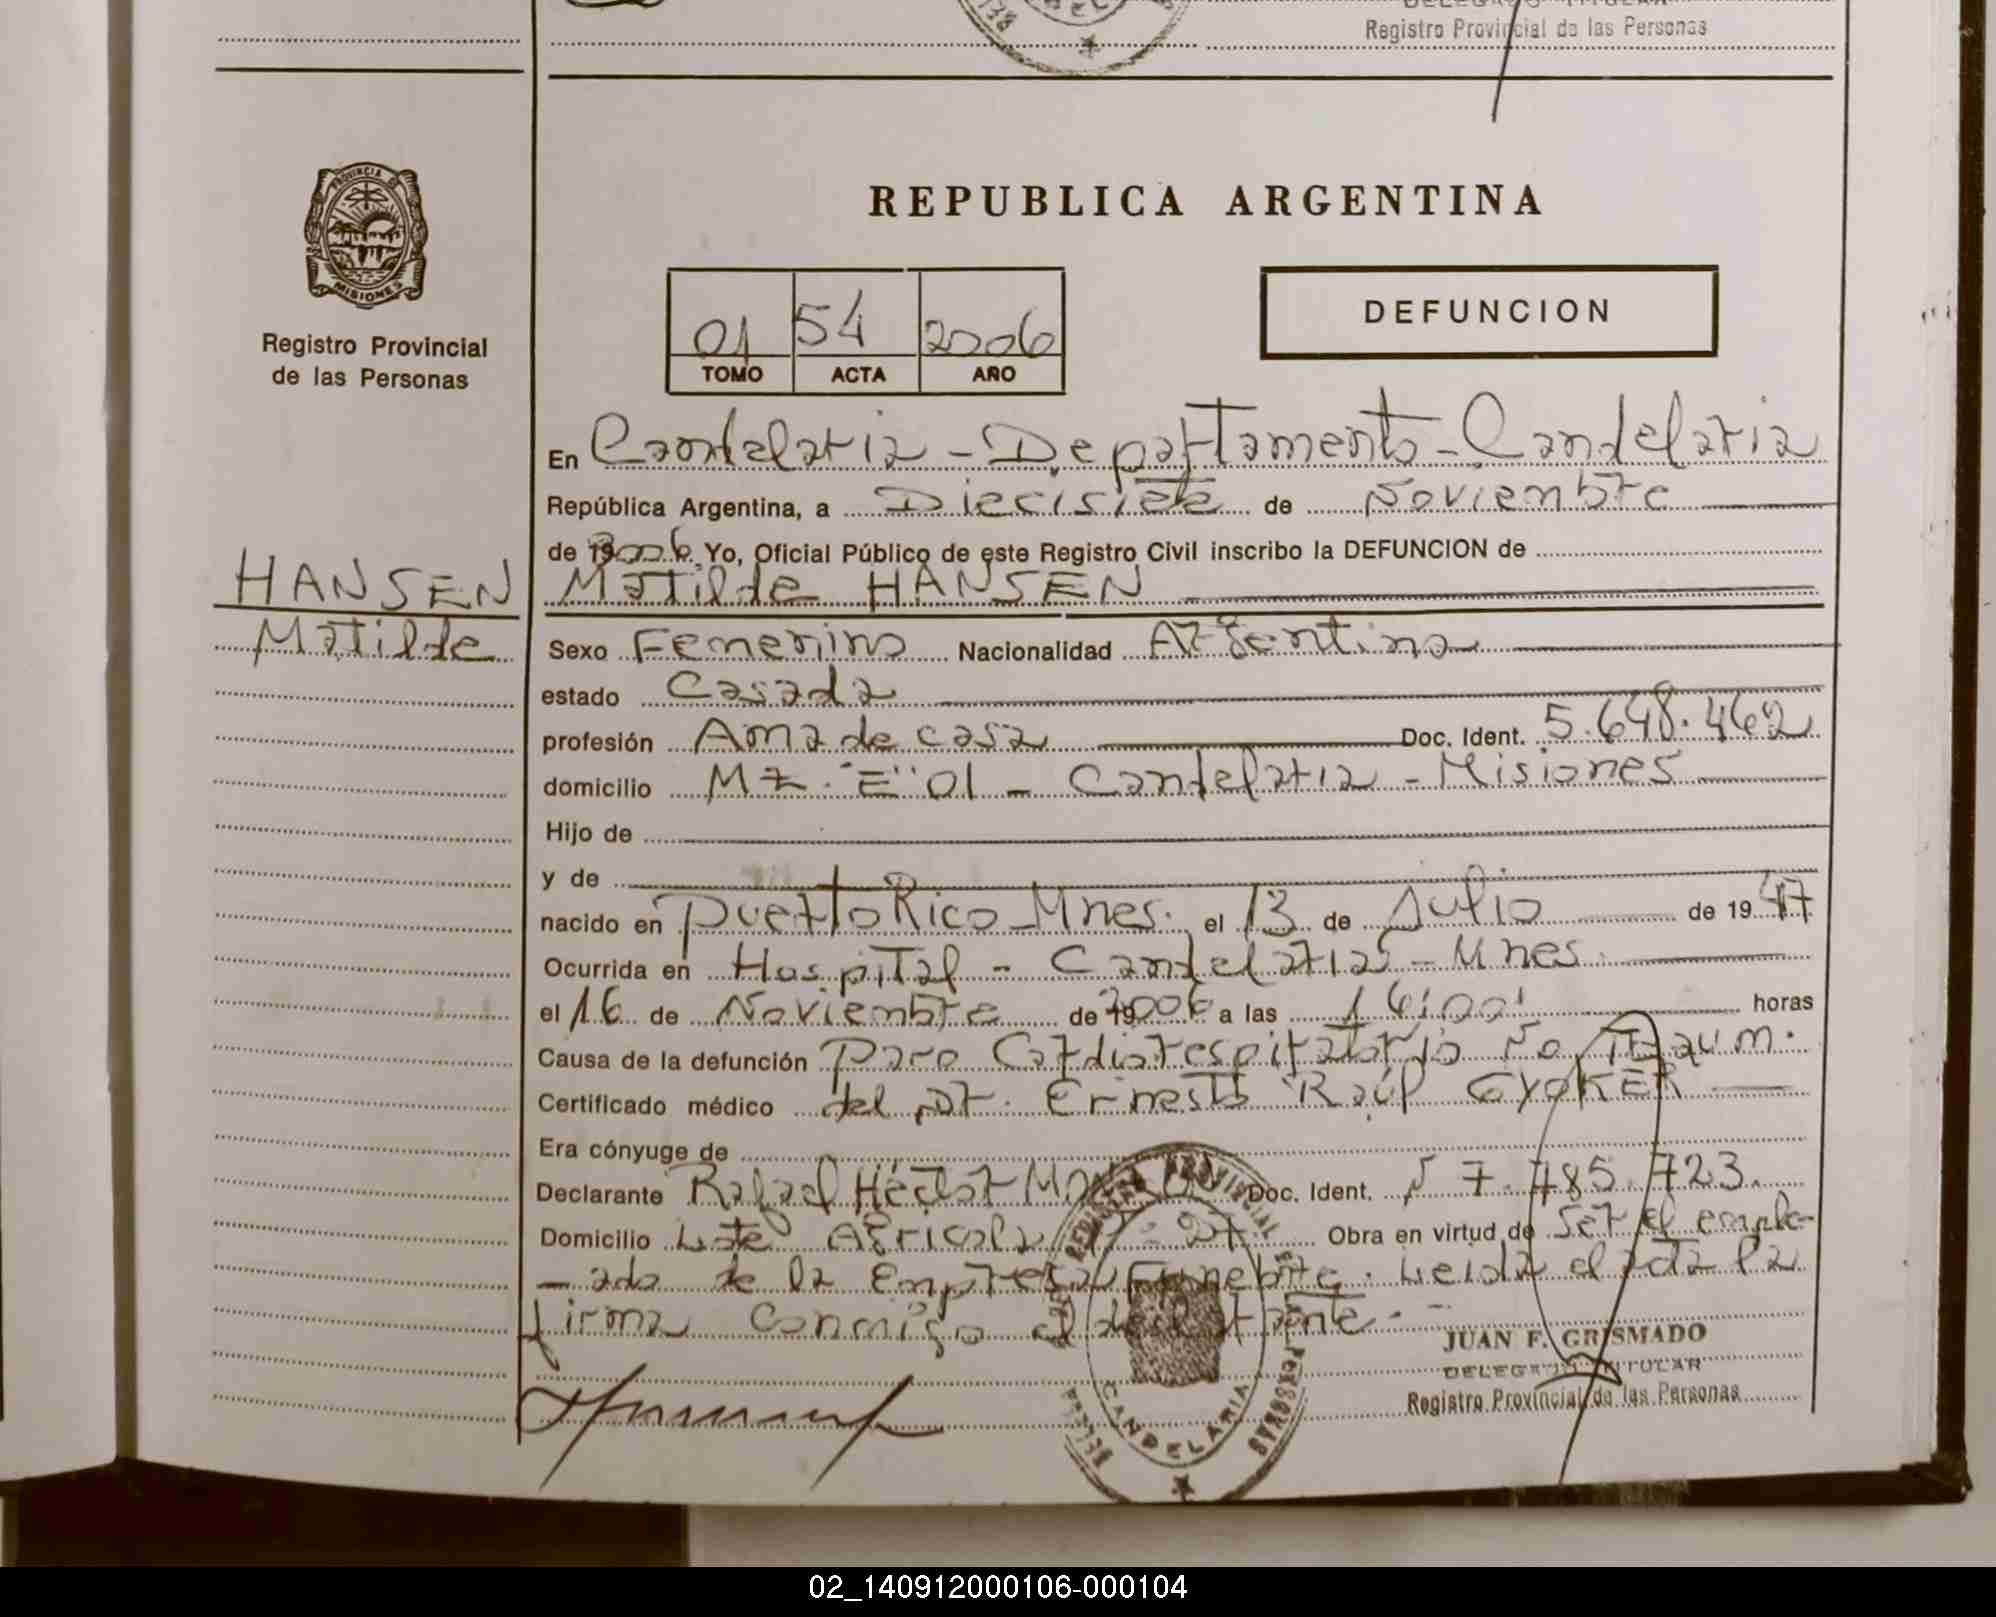 DELEGADO TITULAR
Registro Provincial de las Personas
PROVINCIA DE
MISIONES
Registro Provincial
de las Personas
REPUBLICA ARGENTINA
01 54 2006
TOMO ACTA AÑO
DEFUNCION
En Candelaria - Departamento - Candelaria
República Argentina, a Diecisiete de Noviembre
de 2006 Yo, Oficial Público de este Registro Civil inscribo la DEFUNCION de
HANSEN Matilde HANSEN
Matilde
Sexo Femenino Nacionalidad Argentina
estado Casada
profesión Ama de casa Doc. Ident. 5.648.462
domicilio Mz. "E" 01 - Candelaria - Misiones
Hijo de
y de
nacido en Puerto Rico Mnes. el 13 de Julio de 1947
Ocurrida en Hospital - Candelaria - Mnes.
el 16 de Noviembre de 2006 a las 14:00' horas
Causa de la defunción Paro Cardiorespiratorio No Traum.
Certificado médico del Dr. Ernesto Raúl GYOKER
Era cónyuge de
Declarante Rafael Héctor Doc. Ident. 7.485.723.
Domicilio Lote Agricola Obra en virtud de Ser el emple-
-ado de la Empresa Funebre. Leida el acta la
firma conmigo el declarante. -
JUAN F. GRISMADO
DELEGADO TITULAR
Registro Provincial de las Personas
REGISTRO PROVINCIAL DE LAS PERSONAS
CANDELARIA
02_140912000106-000104